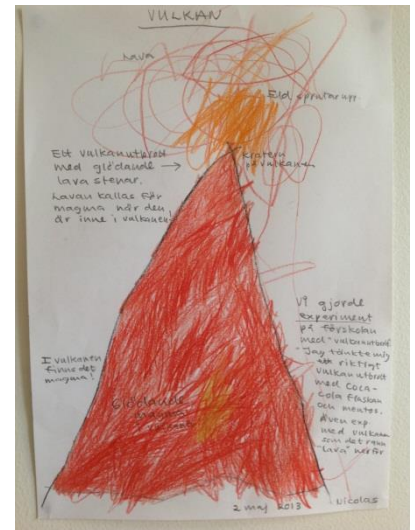 VULKAN
Lava
Eld sprutar upp.
Ett vulkanutbrott
med glödande
lava stenar.
Lavan kallas för
magma när den
är inne i vulkanen!
kratern
på vulkanen
I vulkanen
finns det
magma!
Glödande
magma
Vi gjorde
experiment
på förskolan
med "vulkanutbrott"
"Jag tänkte mig
ett riktigt
vulkanutbrott
med Coca-
Cola flaskan
och mentos.
Även exp.
med vulkanen
som det rann
"lava" nerför
2 maj 2013
Nicolas